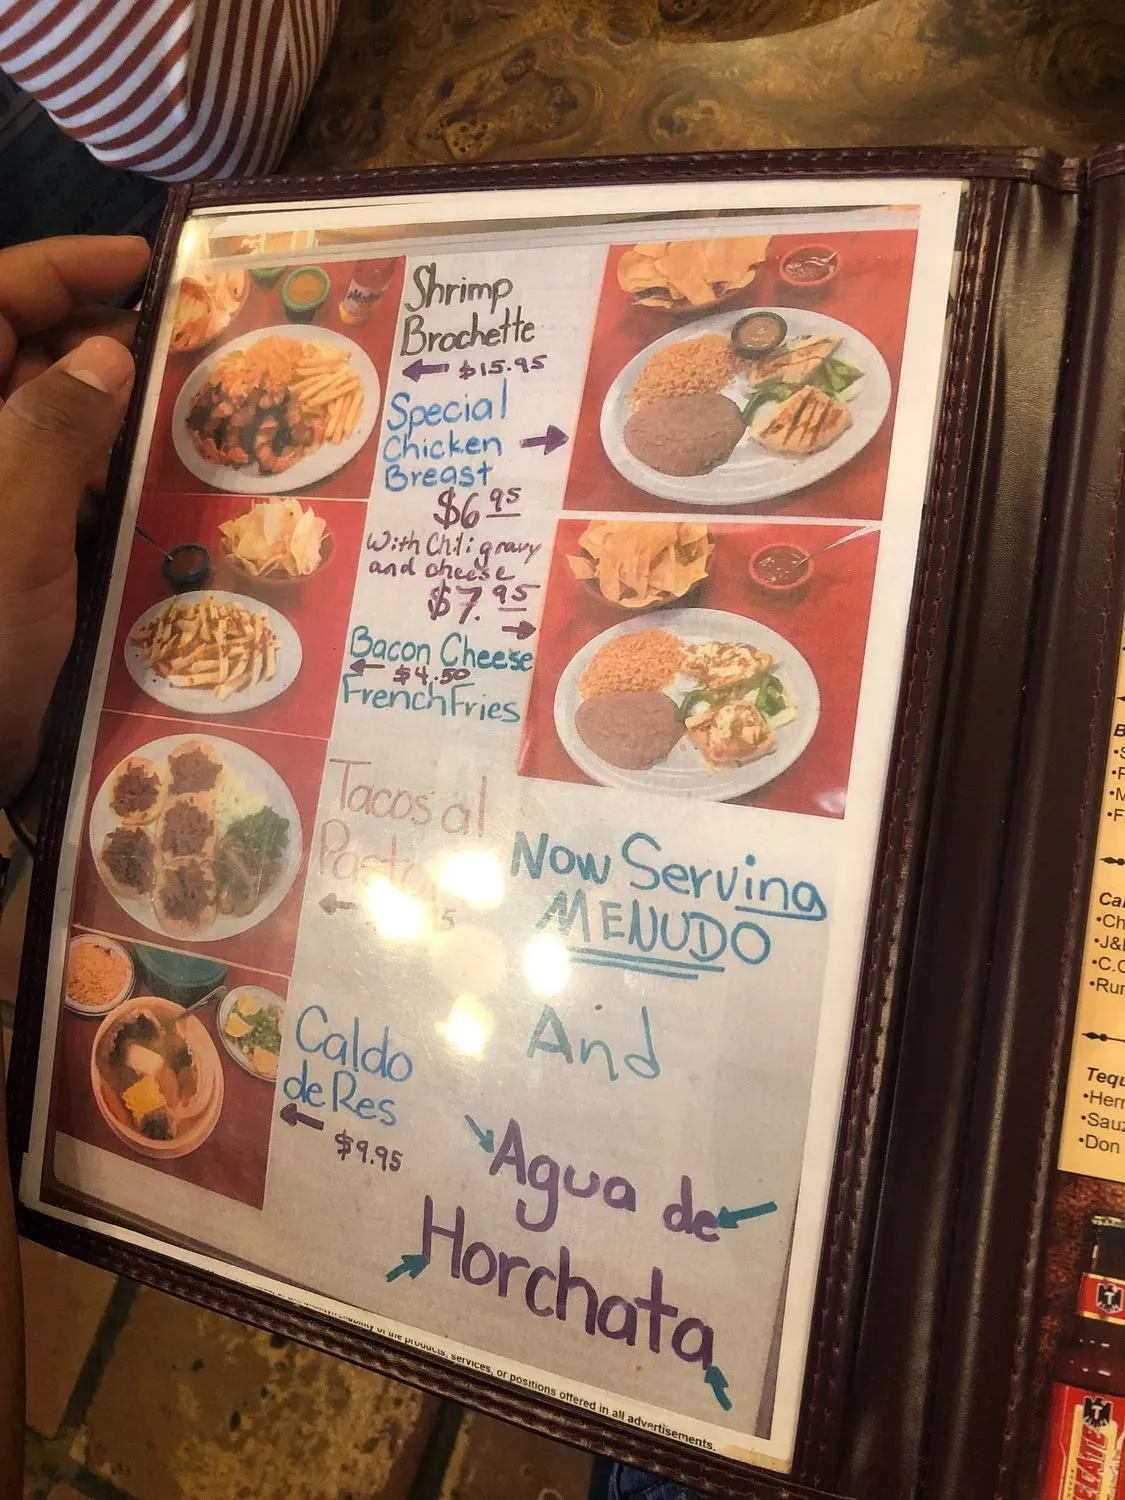 Shrimp
Brochette
$15.95
Special
Chicken
Breast
$6.95
With Chili gravy
and cheese
$7.95
Bacon Cheese
$4.50
French Fries
Tacos al
Caldo
de Res
$9.95
Now Serving
MENUDO
And
Agua de
Horchata
of the products, services, or positions offered in all advertisements.
Tequ
•Herr
•Sauz
•Don
•Ch
•C.C
•Rur
TECATE